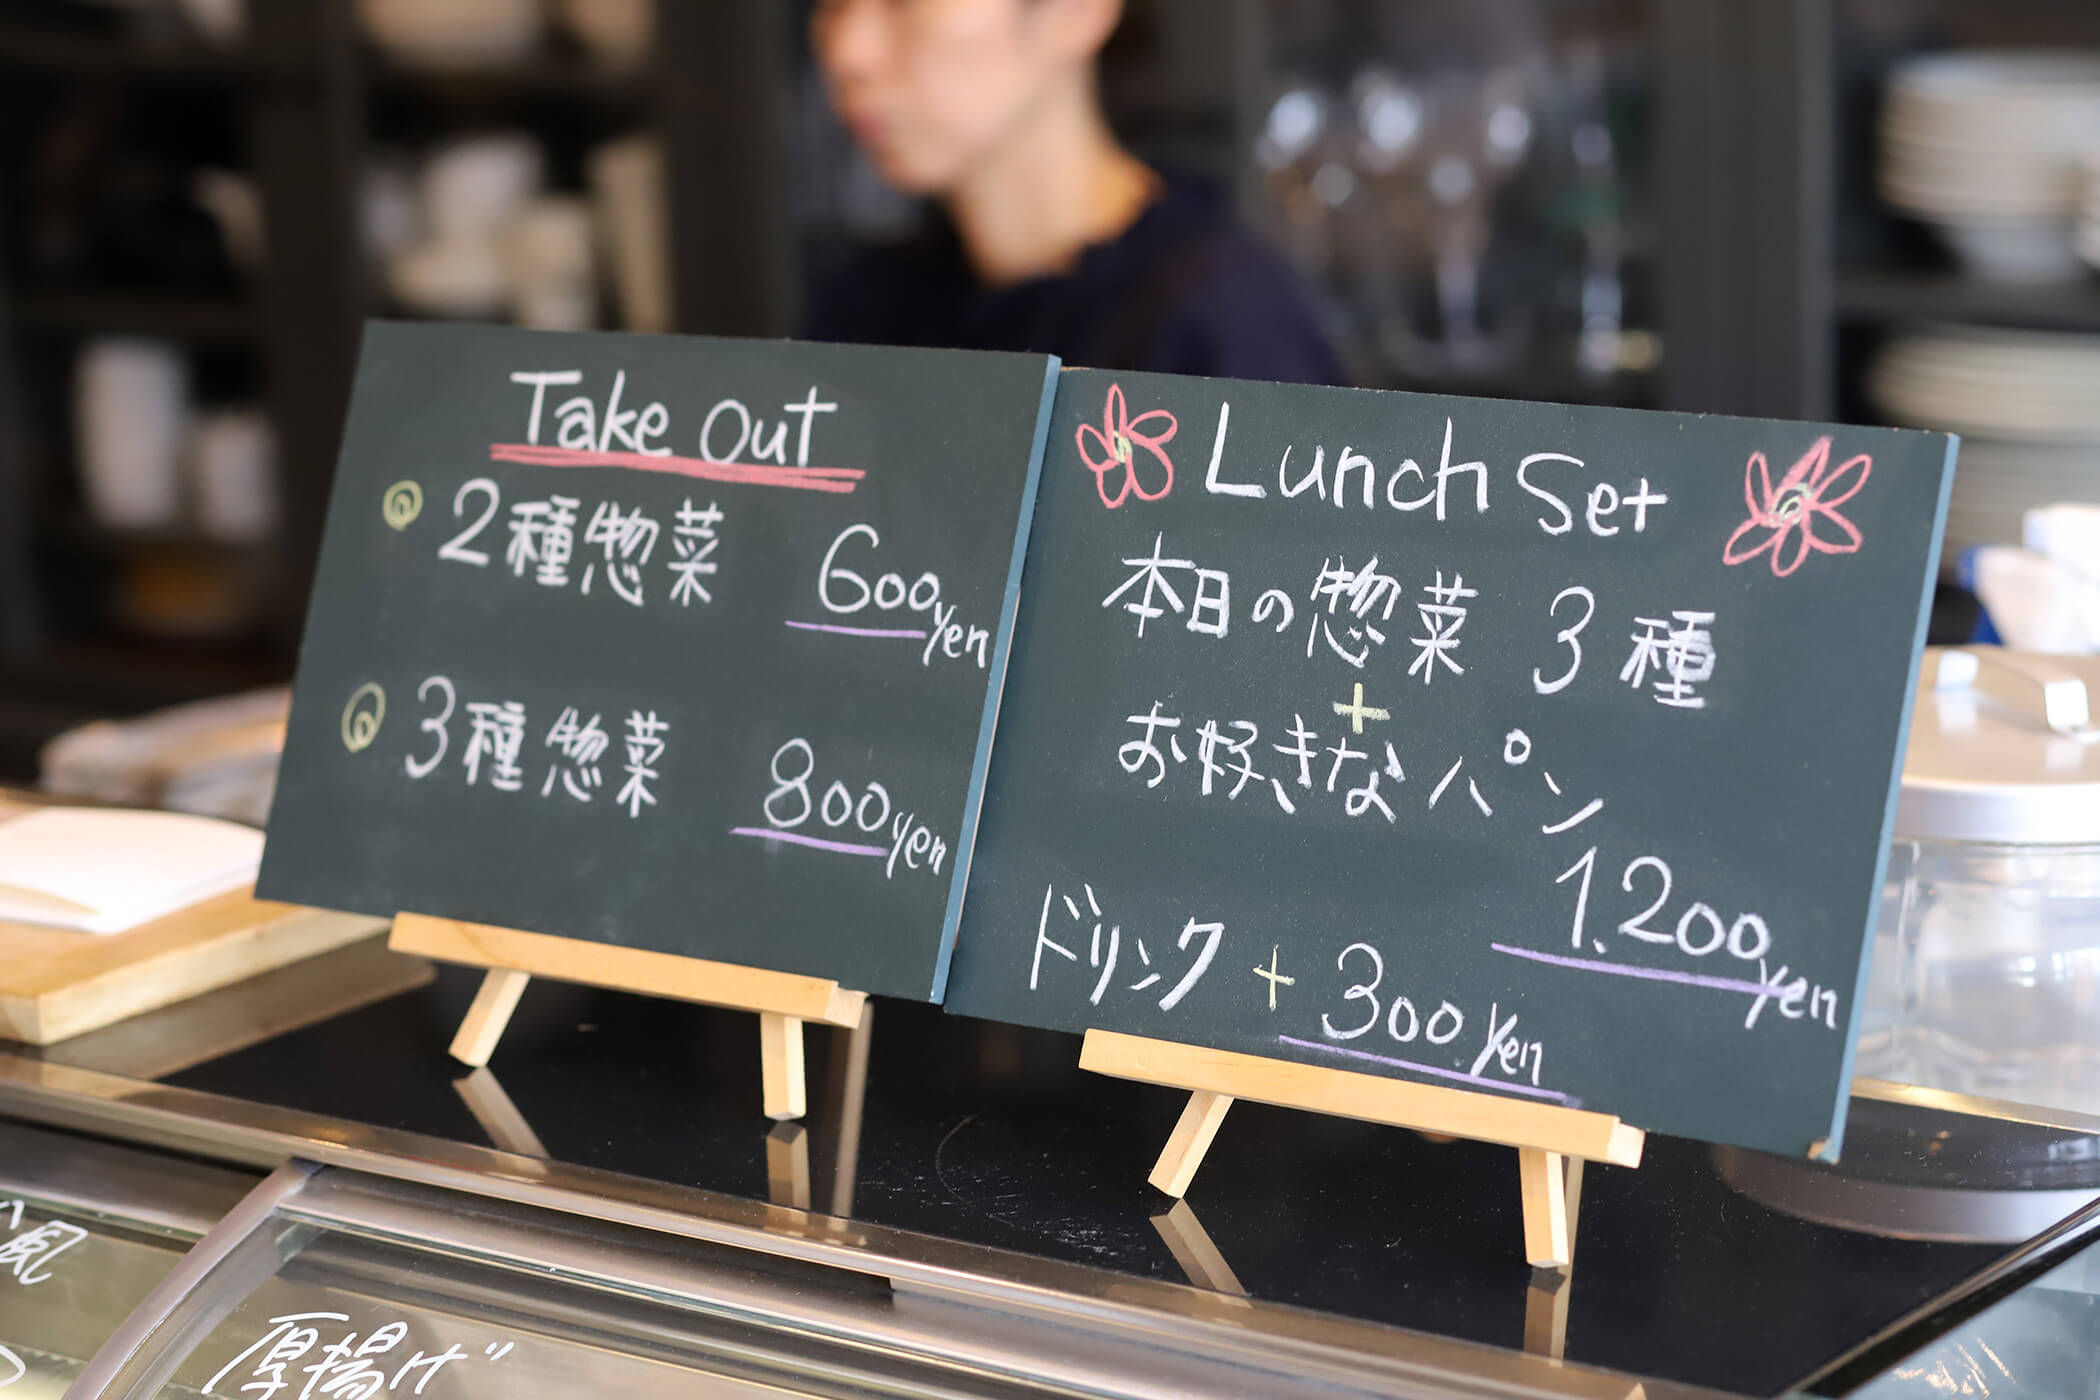 Take out
2種惣菜 600yen
3種惣菜 800yen
Lunch Set
本日の惣菜 3種
+
お好きなパン
1.200yen
ドリンク + 300yen
風
厚揚げ